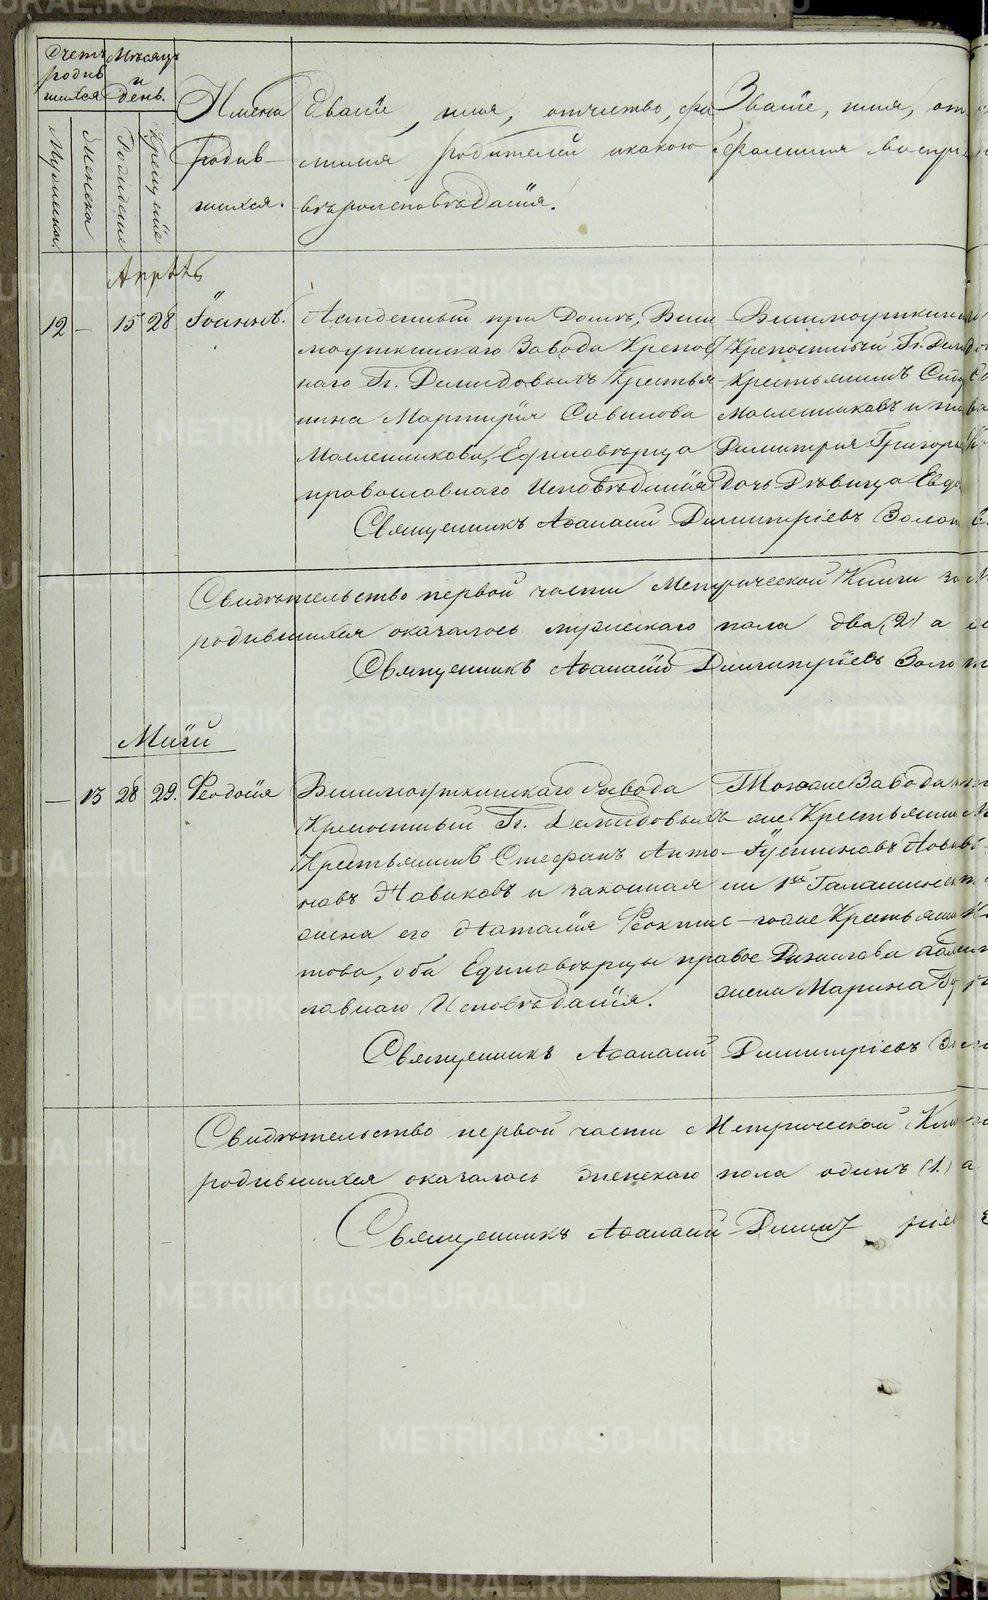 METRIKI.GASO-URAL.RU
Счетъ родив шихся
Мѣсяцъ и день.
Мужеска
Женска
Рождение
Крещеніе
Имена родив- шихся.
Званіе, имя, отчество, фа
милія родителей и какого
вѣроисповѣданія.
Званіе, имя, от
фамилія воспри
Апрѣль
12 — 15 28 Іоаннъ.
при Домѣ, Виси
моуткинскаго Завода Крепос
наго Гг. Демидовыхъ Крестья-
нина Мартирія Савинова
Масленникова, Единовѣрца
православнаго Исповѣданія
Висимоуткинс
Крепостный Гг. Деми
Крестьянинъ Сидо
Масленниковъ и
Димитрія Григорь
дочь Дѣвица Евдо
Священникъ Аѳанасій Димитріевъ Золот
Свидѣтельство первой части Метрической Книги за
родившихся оказалось мужескаго пола два (2) а
Священникъ Аѳанасій Димитріевъ Золо
Маій
— 13 28 29. Ѳеодосія
Висимоуткинскаго Завода
Крепостный Гг. Демидовыхъ
Крестьянинъ Стефанъ Анто-
новъ Новиковъ и законная
жена его Наталія Ѳеоктис-
това, оба Единовѣрцы правос
лавнаго Исповѣданія.
Тогоже Завода
же Крестьянин
Іустиновъ Нови
гоже Крестьянин
жена Марина
Священникъ Аѳанасій Димитріевъ Зо
Свидѣтельство первой части Метрической Кни
родившихся оказалось женскаго пола одинъ (1.) а
Священникъ Аѳанасій Димит ріе